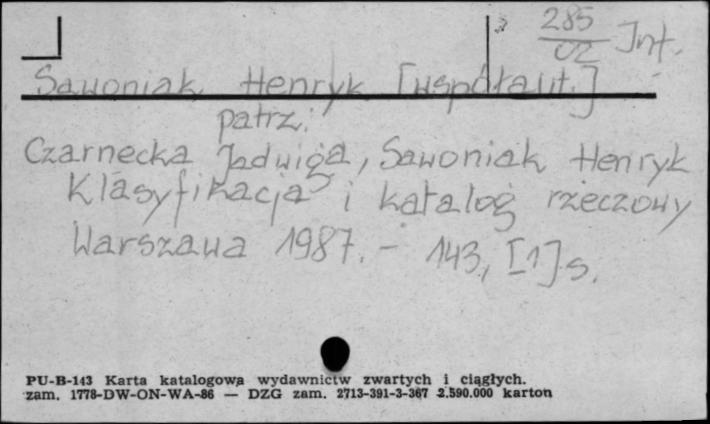 285
02 Int.
Sawoniak Henryk [współaut.]
patrz:
Czarnecka Jadwiga, Sawoniak Henryk
Klasyfikacja i katalog rzeczowy
Warszawa 1987. - 143, [1] s.
PU-B-143 Karta katalogowa wydawnictw zwartych i ciągłych.
zam. 1778-DW-ON-WA-86 — DZG zam. 2713-391-3-367 2.590.000 karton